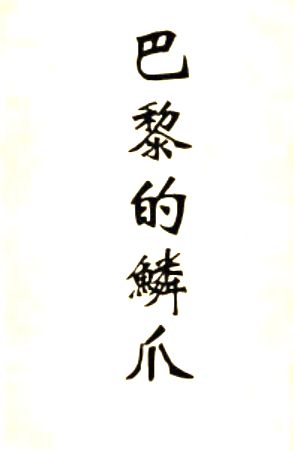 巴黎的鱗爪